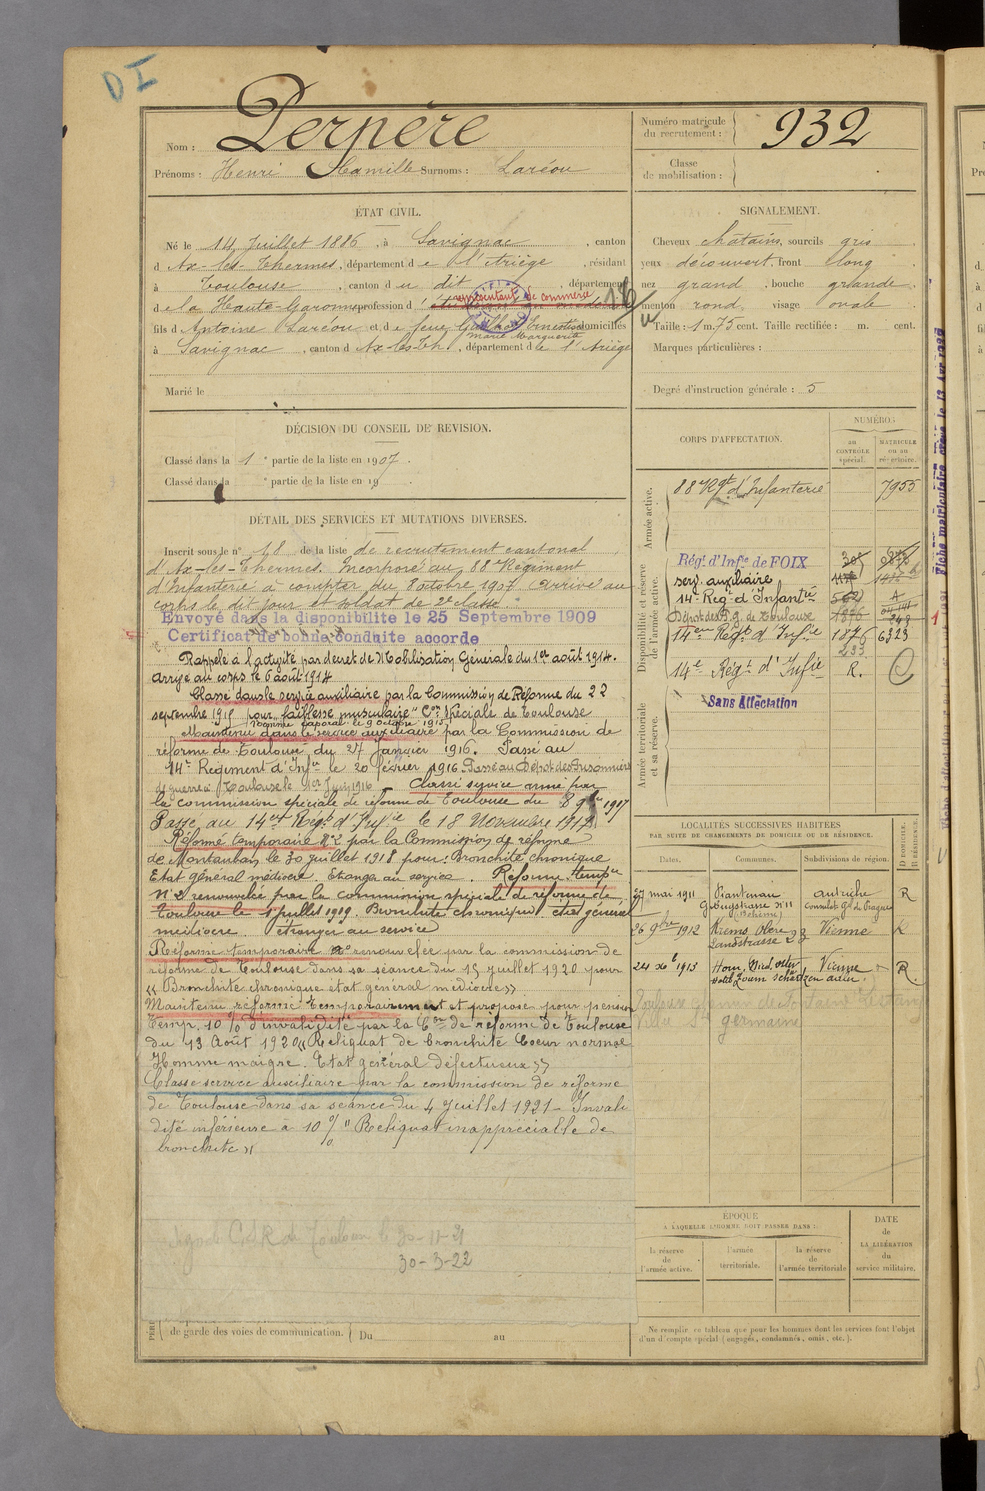 D I
Nom : Perpère
Prénoms : Henri Camille Surnoms : Laréou
Numéro matricule
du recrutement : 932
Classe
de mobilisation :
ÉTAT CIVIL.
Né le 14 Juillet 1886, à Savignac, canton
d'Ax-les-Thermes, département de l'Ariège, résidant
à Toulouse, canton du dit, département
de la Haute-Garonne, profession d'
représentant de commerce
fils d'Antoine Laréou et de feue Ernestine domiciliés
Marie Marguerite
à Savignac, canton d'Ax-les-Th., département de l'Ariège
Marié le
SIGNALEMENT.
Cheveux châtains, sourcils gris
yeux découvert, front long
nez grand, bouche grande
menton rond, visage ovale
Taille : 1 m. 75 cent. Taille rectifiée : m. cent.
Marques particulières :
Degré d'instruction générale : 5
DÉCISION DU CONSEIL DE REVISION.
Classé dans la 1e partie de la liste en 1907.
Classé dans la e partie de la liste en 19
DÉTAIL DES SERVICES ET MUTATIONS DIVERSES.
Inscrit sous le n° 18 de la liste de recrutement cantonal
d'Ax-les-Thermes. Incorporé au 88e Régiment
d'Infanterie à compter du 8 octobre 1907. Arrivé au
corps le dit jour et soldat de 2e classe.
Envoyé dans la disponibilité le 25 Septembre 1909
Certificat de bonne conduite accordé
Rappelé à l'activité par décret de Mobilisation Générale du 1er août 1914.
Arrivé au corps le 6 août 1914
Classé dans le service auxiliaire par la Commission de Réforme du 22
septembre 1915 pour "faiblesse musculaire" Con Spéciale de Toulouse
Nommé caporal le 9 octobre 1915
Maintenu dans le service auxiliaire par la Commission de
réforme de Toulouse du 27 Janvier 1916. Passé au
14e Régiment d'Infie le 20 février 1916 Passé au Dépôt des Prisonniers
de guerre à Toulouse le 1er Juin 1916 - Classé service armé par
la commission spéciale de réforme de Toulouse du 8 9bre 1917
Passé au 14eme Régt d'Infie le 18 Novembre 1917
Réformé temporaire N°2 par la Commission de réforme
de Montauban le 30 juillet 1918 pour : Bronchite chronique
Etat général médiocre. Etranger au service. Réforme tempre
n° 2 renouvelée par la commission spéciale de réforme de
Toulouse le 1er juillet 1919. Bronchite chronique état général
médiocre. étranger au service
Réforme temporaire n° renouvelée par la commission de
réforme de Toulouse dans sa séance du 15 juillet 1920 pour
« Bronchite chronique état général médiocre »
Maintenu réformé temporairement et proposé pour pension
temp. 10 % d'invalidité par la Con de réforme de Toulouse
du 13 Août 1920 « Reliquat de bronchite Coeur normal
Homme maigre. Etat général défectueux »
Classé service auxiliaire par la commission de réforme
de Toulouse dans sa séance du 4 Juillet 1921 - Invali
dité inférieure à 10 % "Reliquat inappréciable de
bronchite"
30-3-22
de garde des voies de communication. Du au
CORPS D'AFFECTATION.
NUMÉRO :
au
CONTRÔLE
spécial.
MATRICULE
ou au
répertoire.
Armée active.
88e Rgt d'Infanterie 7955
Disponibilité et réserve
de l'armée active.
Rég. d'Infie de FOIX
serv. auxiliaire
14e Reg. d'Infantie
Dépôt des P.G. de Toulouse 1876
14eme Régt d'Infie 1876 6323
14e Régt d'Infie R.
Armée territoriale
et sa réserve.
Sans Affectation
LOCALITÉS SUCCESSIVES HABITÉES
PAR SUITE DE CHANGEMENTS DE DOMICILE OU DE RÉSIDENCE.
Dates. Communes. Subdivisions de région. D DOMICILE. R RÉSIDENCE.
27 mai 1911 autriche R
(Bohême) Consulat Gal de Prague
26 9bre 1912 Krems Obere Vienne R
Landstrasse
24 Xbre 1913 Horn, Vienne R
ÉPOQUE
A LAQUELLE L'HOMME DOIT PASSER DANS :
la réserve
de
l'armée active.
l'armée
territoriale.
la réserve
de
l'armée territoriale
DATE
de
LA LIBÉRATION
du
service militaire.
Ne remplir ce tableau que pour les hommes dont les services font l'objet
d'un décompte spécial (engagés, condamnés, omis, etc.).